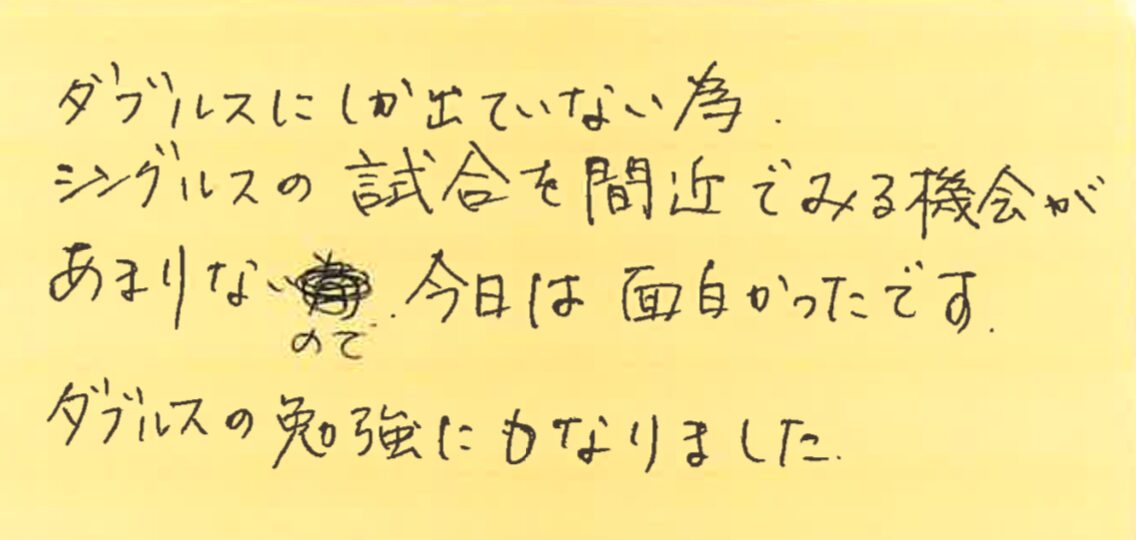 ダブルスにしか出ていない為.
シングルスの試合を間近でみる機会が
あまりないので.今日は面白かったです.
ダブルスの勉強にもなりました.